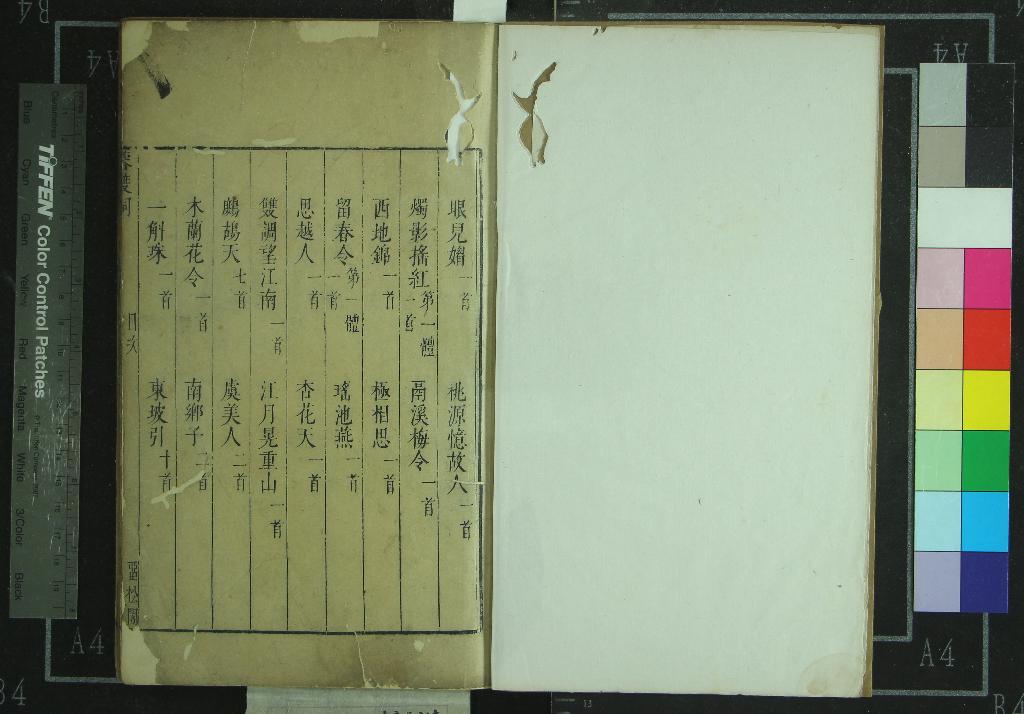 眼兒媚 一首 桃源憶故人 一首
燭影搖紅 第一體 一首 鬲溪梅令 一首
西地錦 一首 極相思 一首
留春令 第一體 一首 瑤池燕 一首
思越人 一首 杏花天 一首
雙調望江南 一首 江月晃重山 一首
鷓鴣天 七首 虞美人 二首
木蘭花令 一首 南鄉子 二首
一斛珠 一首 東坡引 十首
目次
TIFFEN Color Control Patches
Blue Cyan Green Yellow Red Magenta White 3/Color Black
A4
A4
A4
A4
B4
B4
B4